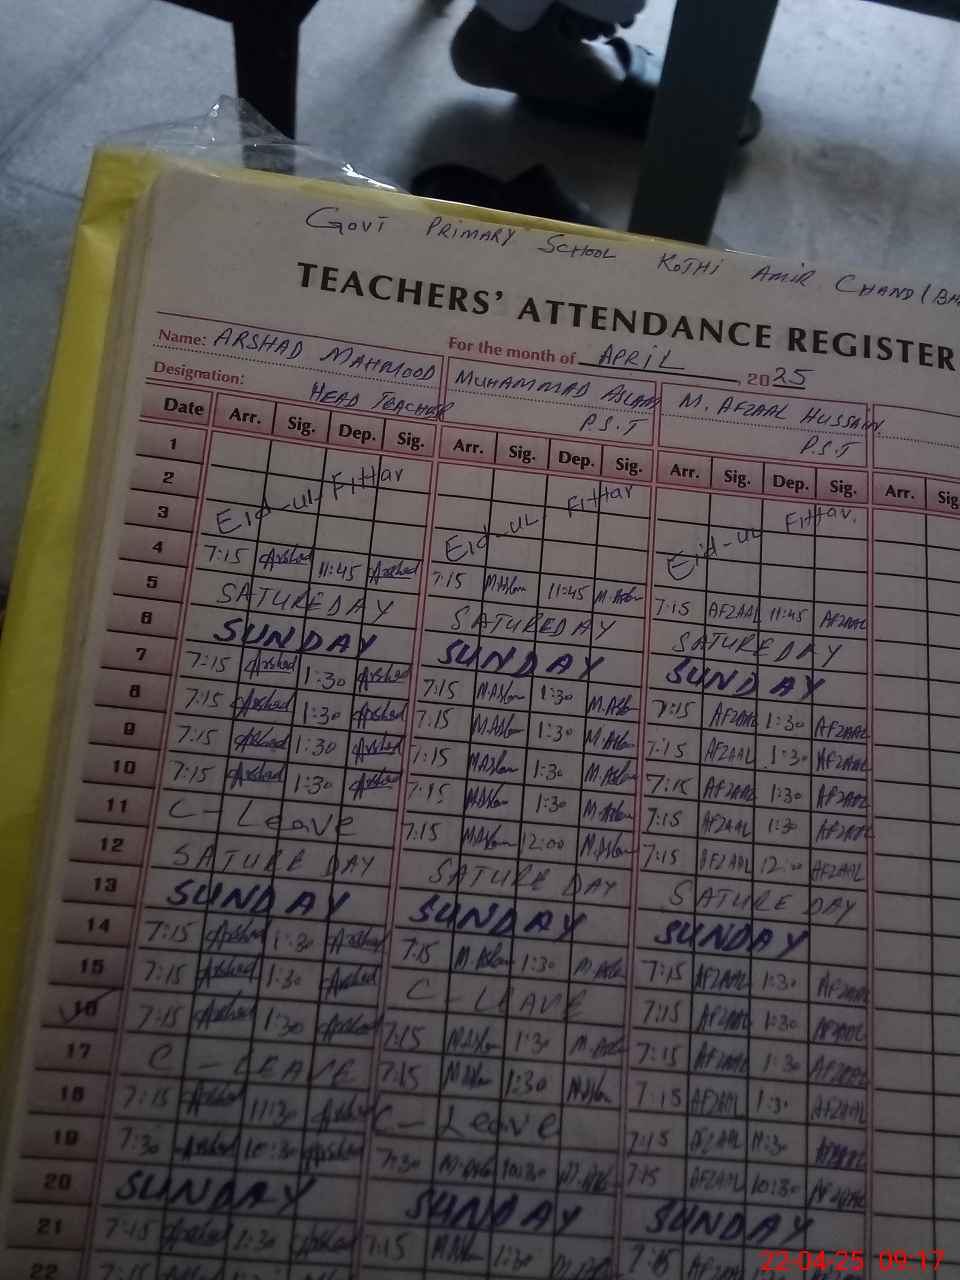 GOVT PRIMARY SCHOOL KOTHI AMIR CHAND (
TEACHERS' ATTENDANCE REGISTER
For the month of APRIL, 2025
Name: ARSHAD MAHMOOD MUHAMMAD ASLAM M. AFZAAL HUSSAIN
Designation: HEAD TEACHER P.S.T P.S.T
Date Arr. Sig. Dep. Sig. Arr. Sig. Dep. Sig. Arr. Sig. Dep. Sig. Arr. Sig
1
2
3 Eid-ul-Fittar Eid-ul Fittar Eid-ul Fittar.
4 7:15 Arshad 11:45 Arshad 7:15 M.Aslam 11:45 M.Aslam 7:15 AFZAAL 11:45 AFZAAL
5 SATUREDAY SATUREDAY SATUREDAY
6 SUNDAY SUNDAY SUNDAY
7 7:15 Arshad 1:30 Arshad 7:15 M.Aslam 1:30 M.Aslam 7:15 AFZAAL 1:30 AFZAAL
8 7:15 Arshad 1:30 Arshad 7:15 M.Aslam 1:30 M.Aslam 7:15 AFZAAL 1:30 AFZAAL
9 7:15 Arshad 1:30 Arshad 7:15 M.Aslam 1:30 M.Aslam 7:15 AFZAAL 1:30 AFZAAL
10 7:15 Arshad 1:30 Arshad 7:15 M.Aslam 1:30 M.Aslam 7:15 AFZAAL 1:30 AFZAAL
11 C-Leave 7:15 M.Aslam 12:00 M.Aslam 7:15 AFZAAL 12:00 AFZAAL
12 SATUREDAY SATUREDAY SATUREDAY
13 SUNDAY SUNDAY SUNDAY
14 7:15 Arshad 1:30 Arshad 7:15 M.Aslam 1:30 M.Aslam 7:15 AFZAAL 1:30 AFZAAL
15 7:15 Arshad 1:30 Arshad C-LEAVE 7:15 AFZAAL 1:30 AFZAAL
16 7:15 Arshad 1:30 Arshad 7:15 M.Aslam 1:30 M.Aslam 7:15 AFZAAL 1:30 AFZAAL
17 C-LEAVE 7:15 M.Aslam 1:30 M.Aslam 7:15 AFZAAL 1:30 AFZAAL
18 7:15 Arshad 11:30 Arshad C-Leave 7:15 AFZAAL 11:30 AFZAAL
19 7:30 Arshad 10:30 Arshad 7:30 M.Aslam 10:30 M.Aslam 7:15 AFZAAL 10:30 AFZAAL
20 SUNDAY SUNDAY SUNDAY
21 7:15 Arshad 1:30 Arshad 7:15 M.Aslam 1:30 7:15 AFZAAL
22
22-04-25 09:17